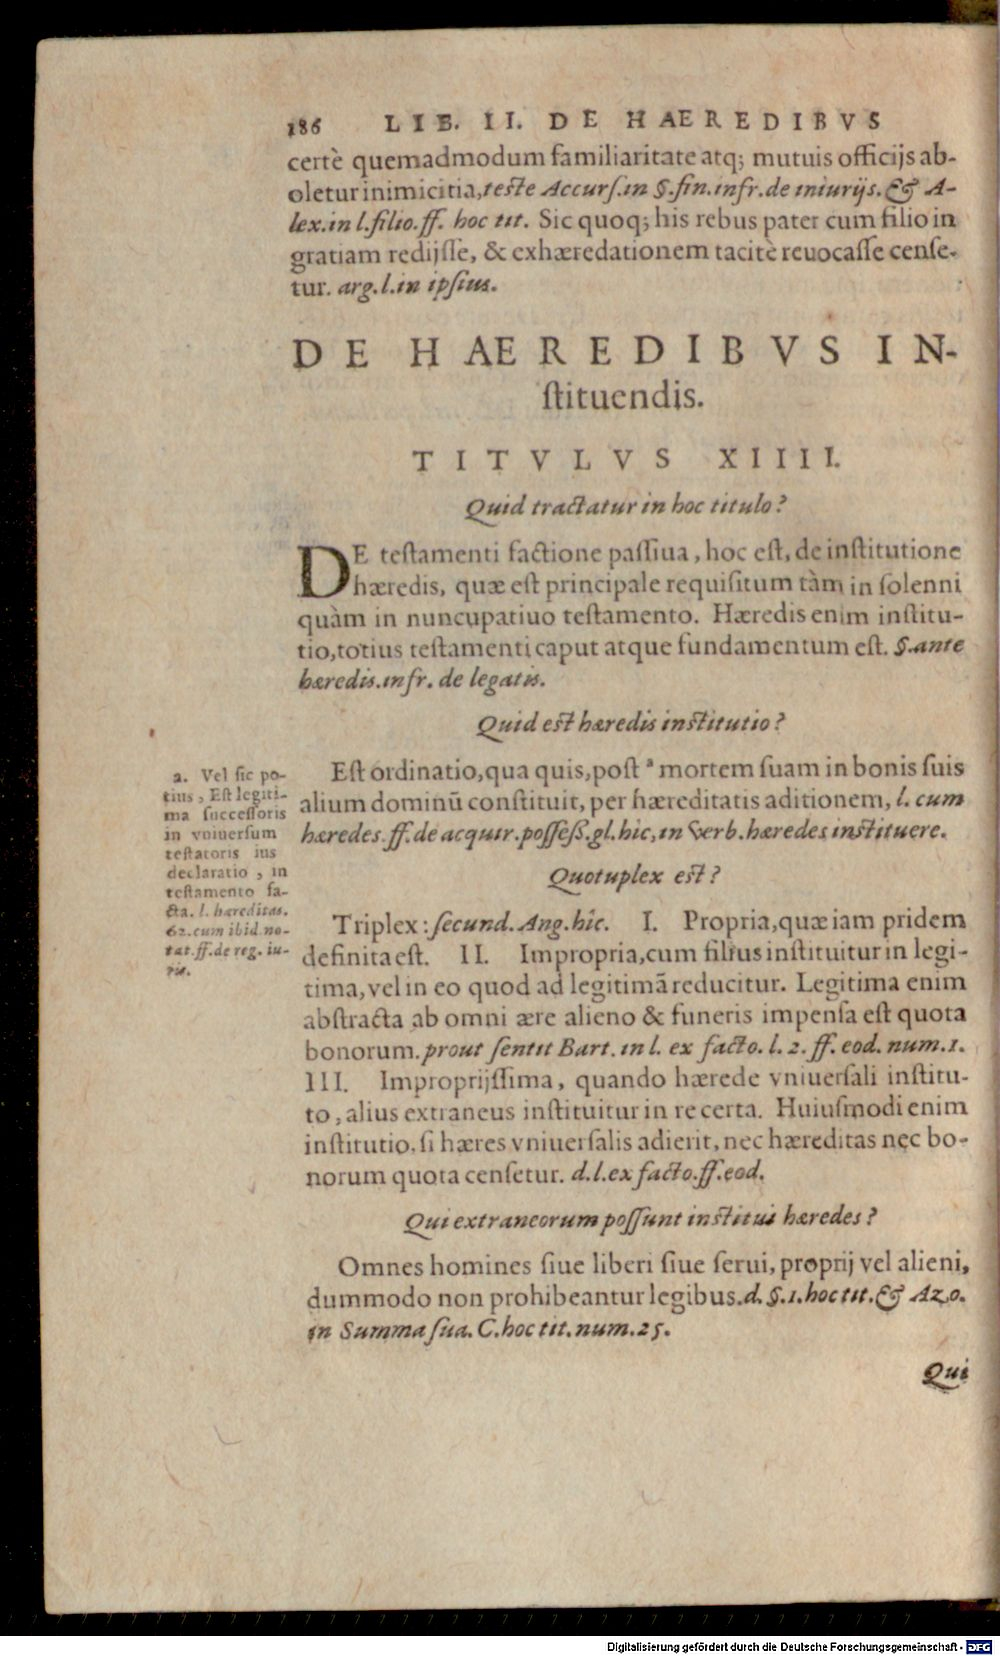 186 LIB. II. DE HAEREDIBVS
certè quemadmodum familiaritate atq; mutuis officijs ab-
oletur inimicitia, teste Accurſ. in §. fin. infr. de iniurijs. & A-
lex. in l. filio. ff. hoc tit. Sic quoq; his rebus pater cum filio in
gratiam redijſſe, & exhæredationem tacitè reuocaſſe cenſe-
tur. arg. l. in ipſius.
DE HAEREDIBVS IN-
ſtituendis.
TITVLVS XIIII.
Quid tractatur in hoc titulo?
DE teſtamenti factione paſſiua, hoc eſt, de inſtitutione
hæredis, quæ eſt principale requiſitum tàm in ſolenni
quàm in nuncupatiuo teſtamento. Hæredis enim inſtitu-
tio, totius teſtamenti caput atque fundamentum eſt. §. ante
hæredis. infr. de legatis.
Quid eſt hæredis inſtitutio?
Eſt ordinatio, qua quis, poſt ᵃ mortem ſuam in bonis ſuis
alium dominũ conſtituit, per hæreditatis aditionem, l. cum
hæredes. ff. de acquir. poſſeſſ. gl. hic, in verb. hæredes inſtituere.
a. Vel ſic po-
tius, Eſt legiti-
ma ſucceſſoris
in vniuerſum
teſtatoris ius
declaratio, in
teſtamento fa-
cta. l. hæreditas.
62. cum ibid. no-
tat. ff. de reg. iu-
ris.
Quotuplex eſt?
Triplex: ſecund. Ang. hîc. I. Propria, quæ iam pridem
definita eſt. II. Impropria, cum filius inſtituitur in legi-
tima, vel in eo quod ad legitimã reducitur. Legitima enim
abſtracta ab omni ære alieno & funeris impenſa eſt quota
bonorum. prout ſentit Bart. in l. ex facto. l. 2. ff. eod. num. 1.
III. Improprijſſima, quando hærede vniuerſali inſtitu-
to, alius extraneus inſtituitur in re certa. Huiuſmodi enim
inſtitutio, ſi hæres vniuerſalis adierit, nec hæreditas nec bo-
norum quota cenſetur. d. l. ex facto. ff. eod.
Qui extraneorum poſſunt inſtitui hæredes?
Omnes homines ſiue liberi ſiue ſerui, proprij vel alieni,
dummodo non prohibeantur legibus. d. §. 1. hoc tit. & Azo.
in Summa ſua. C. hoc tit. num. 25.
Qui
Digitalisierung gefördert durch die Deutsche Forschungsgemeinschaft - DFG